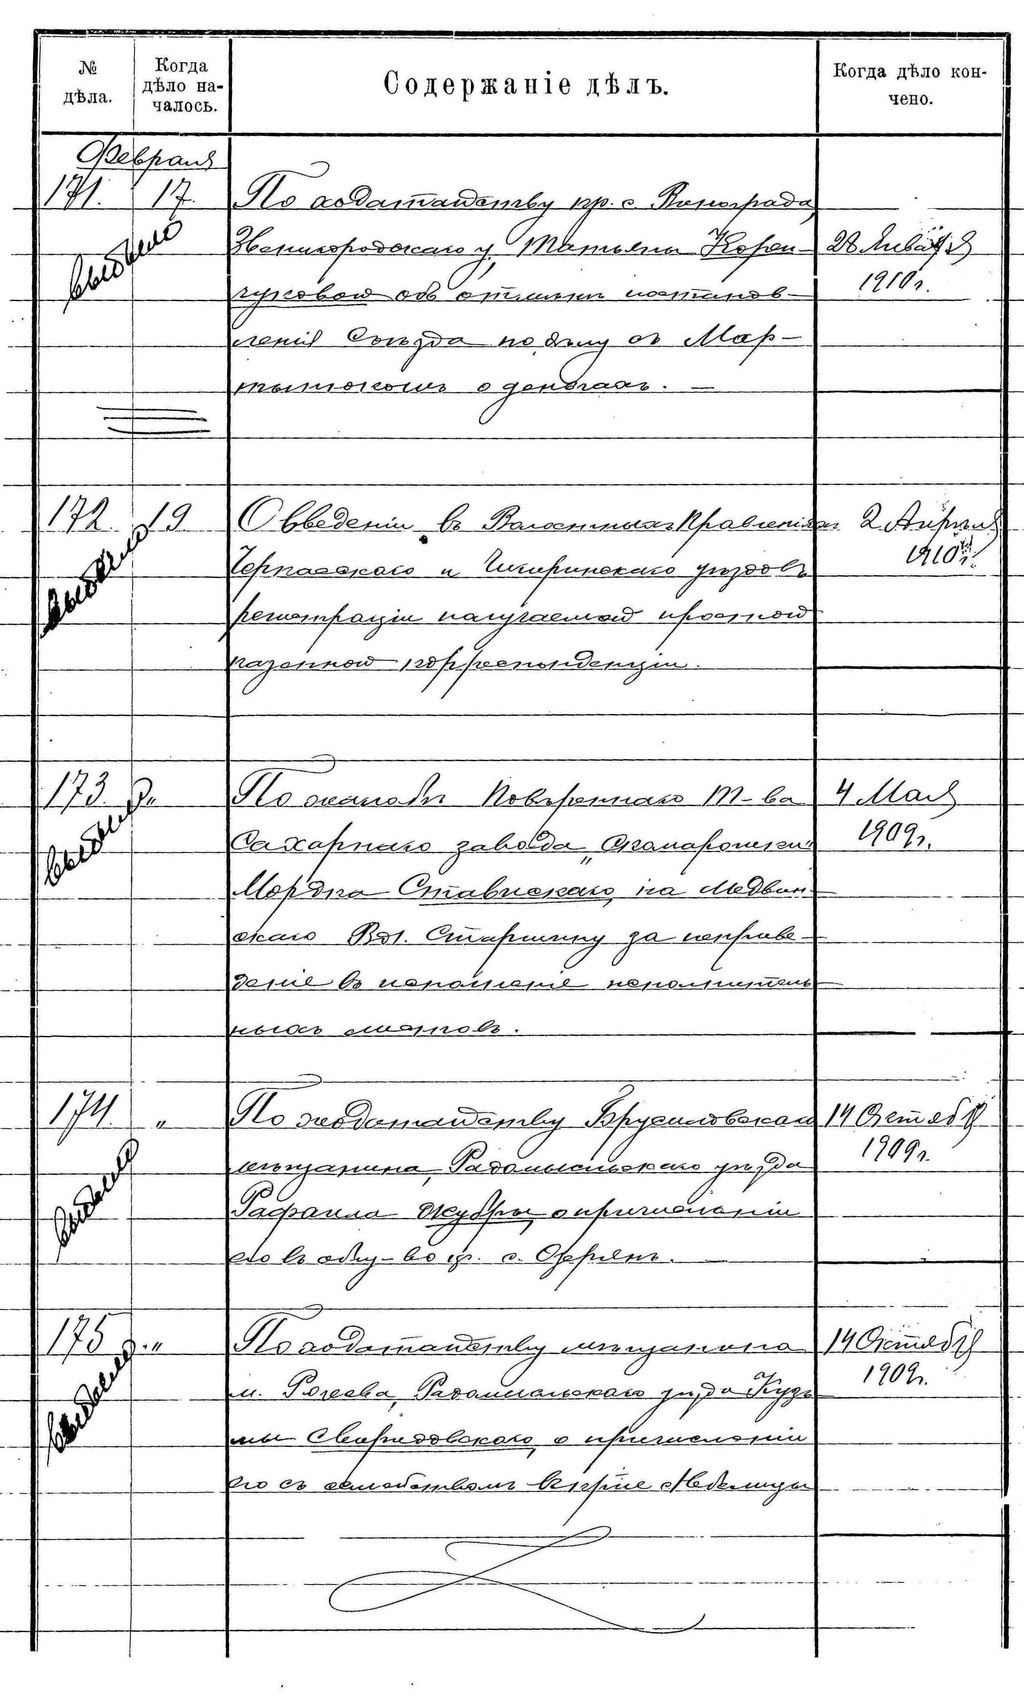 № дѣла.
Когда дѣло на-
чалось.
Содержаніе дѣлъ.
Когда дѣло кон-
чено.
Февраля
171. 17.
По ходатайству кр. с. Винограда,
Звенигородскаго у, Татьяны Корей-
чуковой объ отмѣнѣ постанов-
ленія Съѣзда по дѣлу съ Мар-
тынюкомъ о деньгахъ. —
28 Января
1910 г.
выбыло
172. 19.
О введеніи въ Волостныхъ Правленіяхъ
Черкасскаго и Чигиринскаго уѣздовъ
регистраціи получаемой простой
казенной корреспонденціи.
2 Апрѣля
1910 г.
выбыло
173. "
По жалобѣ Повѣреннаго Т-ва
Сахарнаго завода „Скомарошки"
Мордка Ставискаго, на Медвин-
скаго Вол. Старшину за неприве-
деніе въ исполненіе исполнитель-
ныхъ листовъ.
4 Мая
1909 г.
выбыло
174. "
По ходатайству Брусиловскаго
мѣщанина, Радомысльскаго уѣзда
Рафаила о причисленіи
его въ общ-во кр. с. Озерянъ. —
14 Октября
1909 г.
выбыло
175 "
По ходатайству мѣщанина
м. Рожева, Радомысльскаго уѣзда Кузь-
мы Свиридовскаго, о причисленіи
его съ семействомъ въ с. Небелицы
14 Октября
1909 г.
выбыло